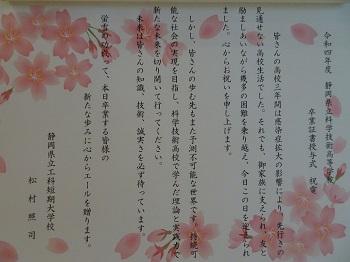 令和四年度 静岡県立科学技術高等学校
卒業証書授与式 祝電
皆さんの高校三年間は感染症拡大の影響により、先行きの
見通せない高校生活でした。それでも、御家族に支えられ、友と
笑いあいながら幾多の困難を乗り越え、今日この日を迎えられ
ました。心からお祝いを申し上げます。
しかし、皆さんの歩む先もまた予測不可能な世界です。持続可
能な社会の実現を目指し、科学技術高校で学んだ理論と実践力で
新たな未来を切り開いて行ってください。
未来は皆さんの知識、技術、誠実さを必ず待っています。
蛍雪の功成って、本日卒業する皆様の
新たな歩みに心からエールを贈ります。
静岡県立工科短期大学校
松村照司